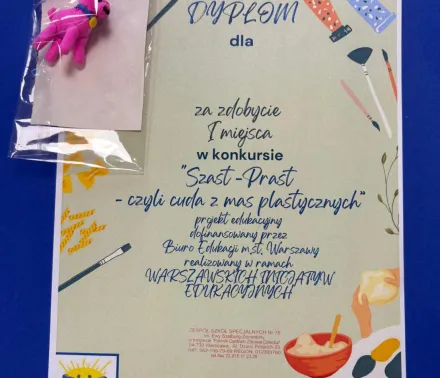 DYPLOM
dla
za zdobycie
I miejsca
w konkursie
"Szast-Prast
- czyli cuda z mas plastycznych"
projekt edukacyjny
dofinansowany przez
Biuro Edukacji m.st. Warszawy
realizowany w ramach
WARSZAWSKICH INICJATYW
EDUKACYJNYCH
ZESPÓŁ SZKÓŁ SPECJALNYCH Nr